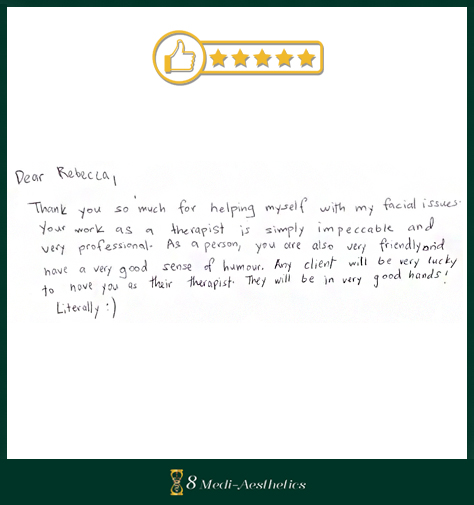 Dear Rebecca,
Thank you so much for helping myself with my facial issues.
Your work as a therapist is simply impeccable and
very professional. As a person, you are also very friendly and
have a very good sense of humour. Any client will be very lucky
to have you as their therapist. They will be in very good hands!
Literally :)
8 Medi-Aesthetics